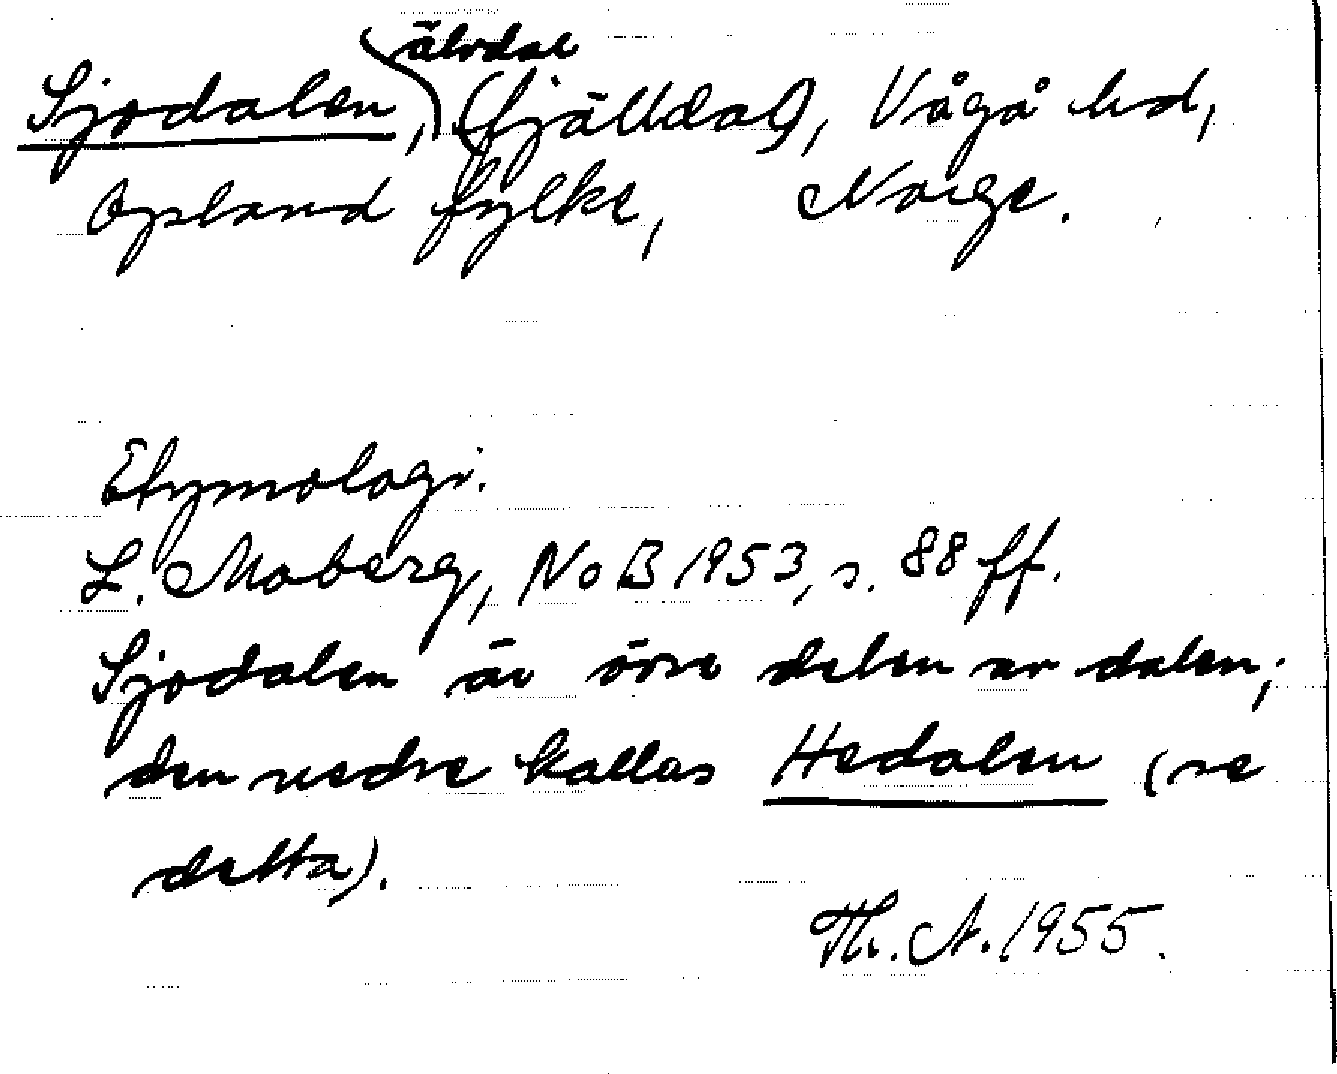 älvdal
Sjodalen, (fjälldal), Vågå hd,
Opland fylke, Norge.
Etymologi.
L. Moberg, NoB 1953, s. 88 ff.
Sjodalen är övre delen av dalen;
den nedre kallas Hedalen (se
detta).
Th. A. 1955.